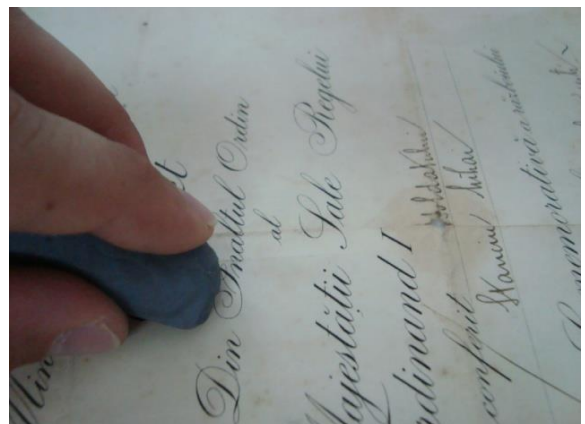 Min
Din Înaltul Ordin
al
Majestății Sale Regelui
rdinand I
conferit Soldatului
Stanciu Mihai
Comemorativă a războiului